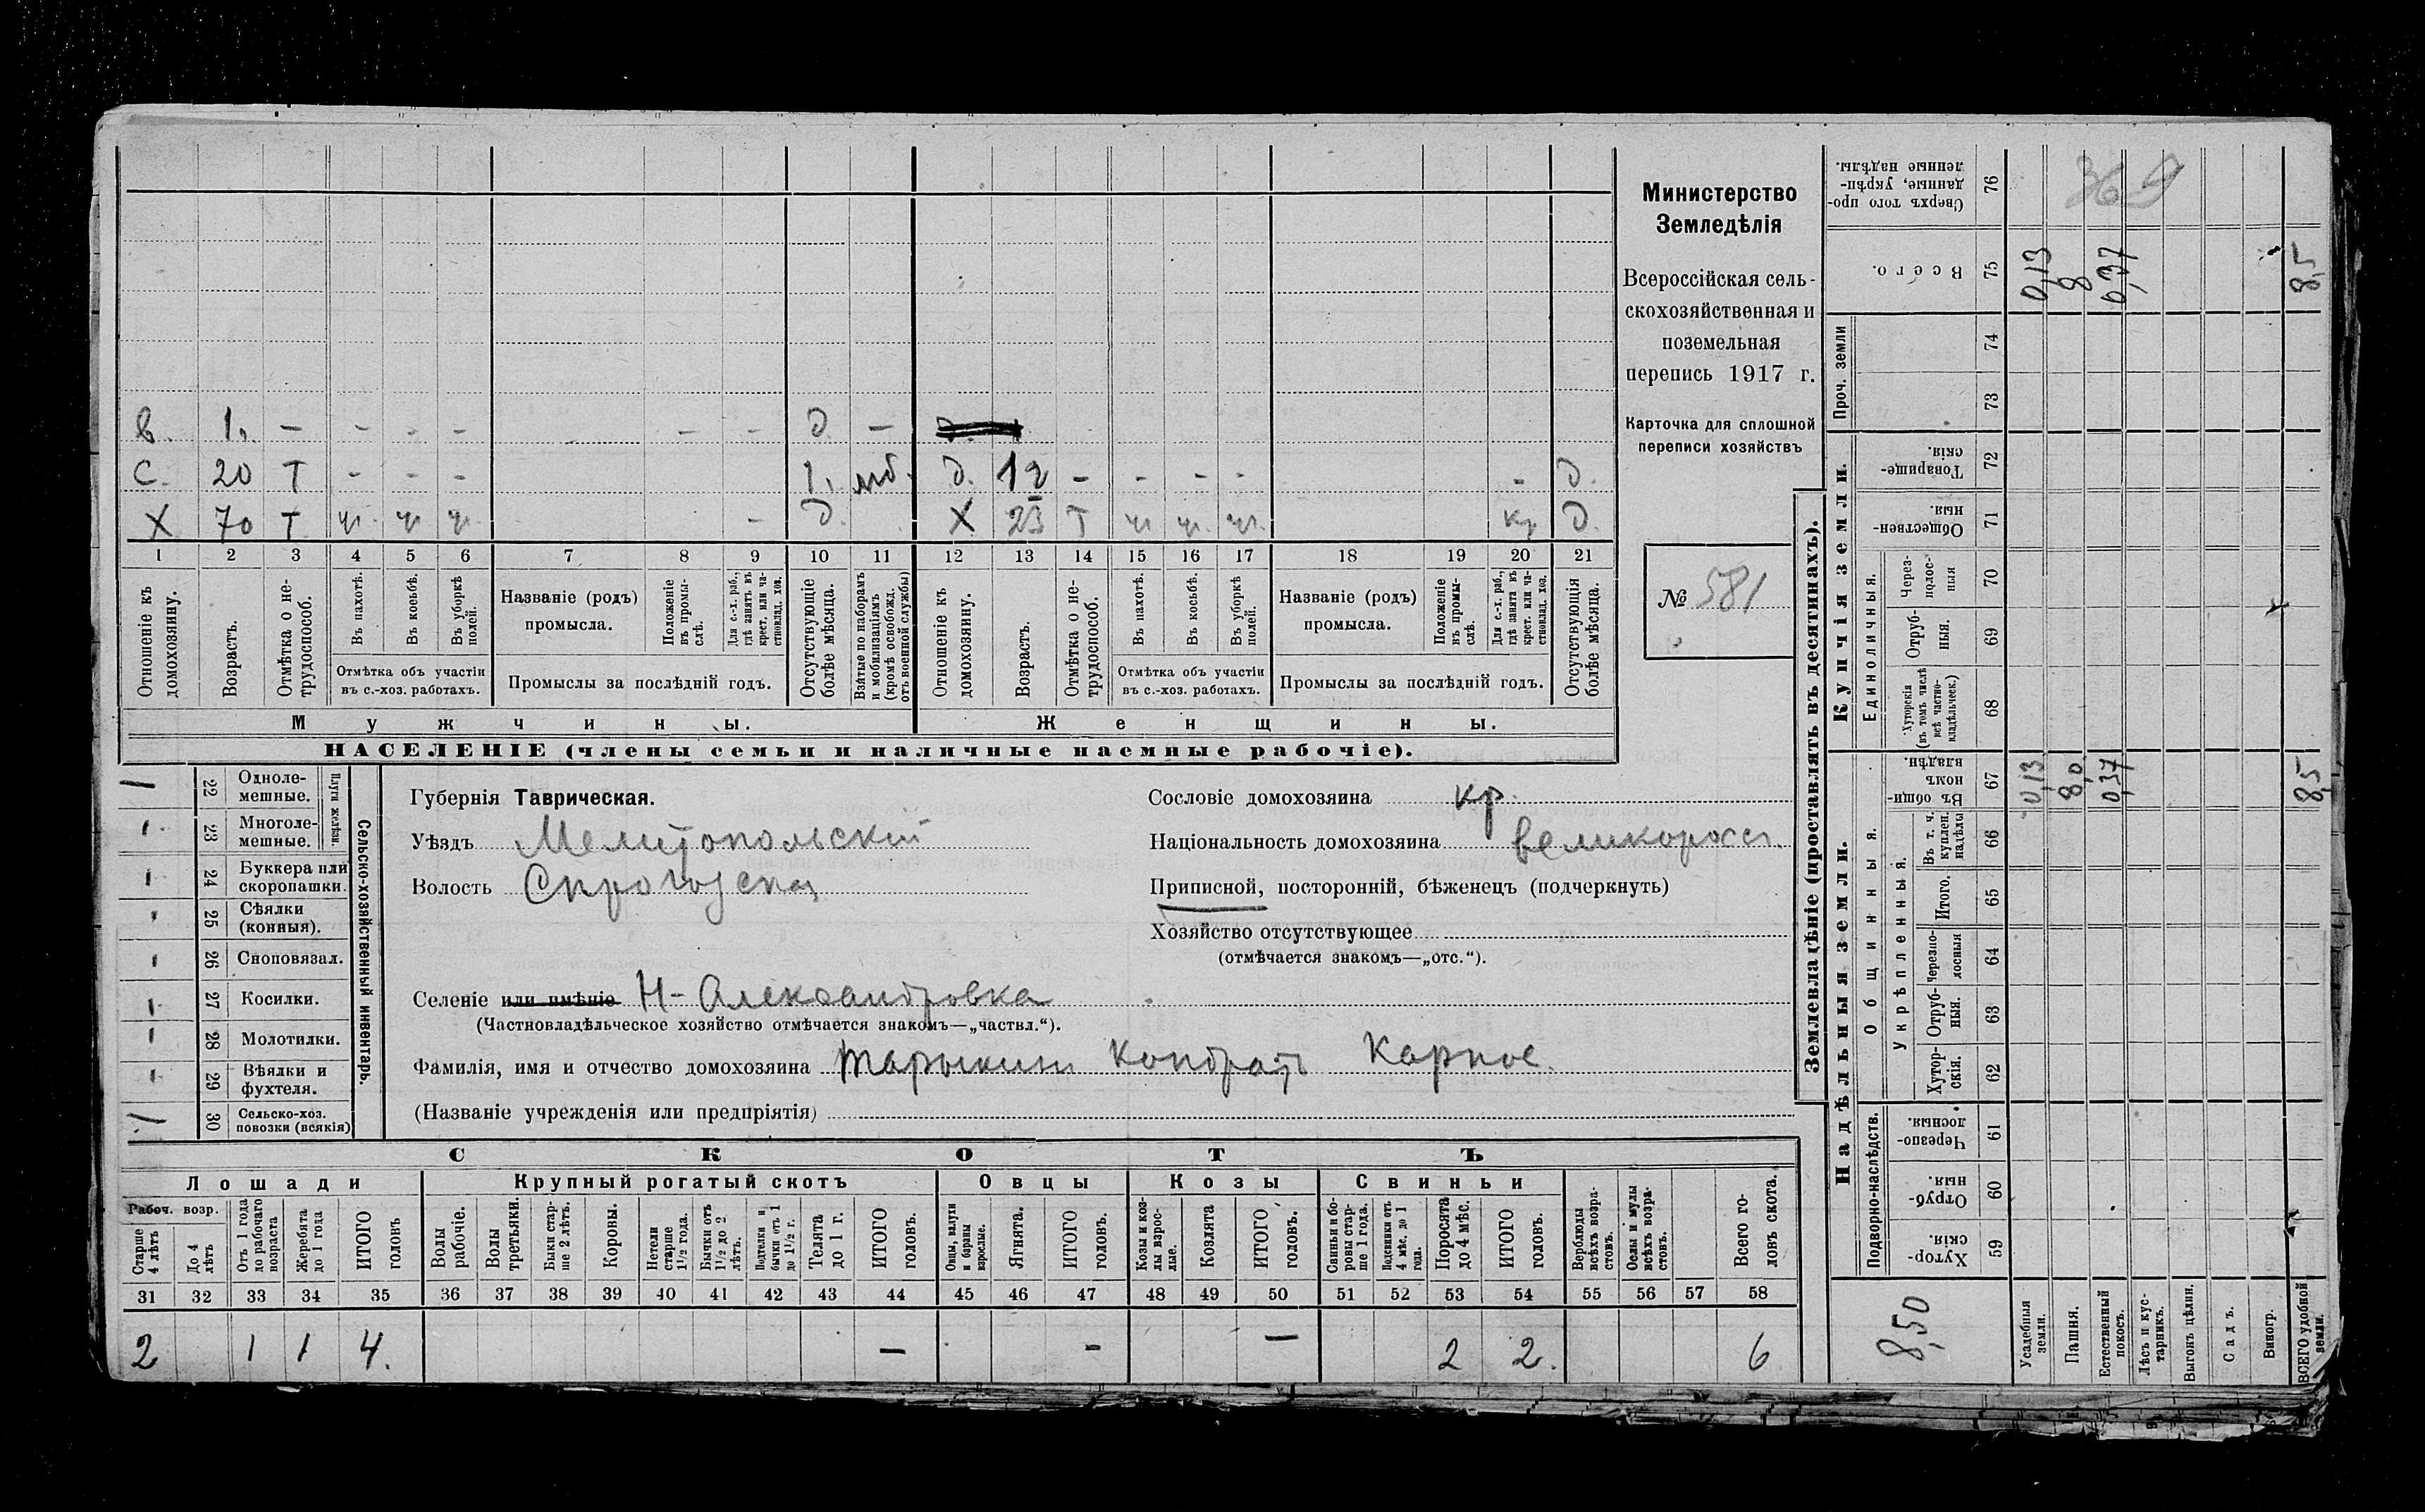 Министерство
Земледѣлія
Всероссійская сель-
скохозяйственная и
поземельная
перепись 1917 г.
Карточка для сплошной
переписи хозяйствъ
№ 581
В. 1. – – – – – – Д. –
С. 20 Т – – – 1. мб. д. 12 – – – – – Д.
X 70 Т ч. ч. ч. – Д. X 23 Т ч. ч. ч. кр. Д.
1 2 3 4 5 6 7 8 9 10 11 12 13 14 15 16 17 18 19 20 21
Отношеніе къ домохозяину.
Возрастъ.
Отмѣтка о не-трудоспособ.
Въ пахотѣ.
Въ косьбѣ.
Въ уборкѣ полей.
Отмѣтка объ участіи въ с.-хоз. работахъ.
Названіе (родъ) промысла.
Положеніе въ промы-слѣ.
Для с.-х. раб., гдѣ занятъ въ крест. или ча-стновлад. хоз.
Промыслы за послѣдній годъ.
Отсутствующіе болѣе мѣсяца.
Взятые по наборамъ и мобилизаціямъ (кромѣ освобожд. отъ военной службы)
Отношеніе къ домохозяину.
Возрастъ.
Отмѣтка о не-трудоспособ.
Въ пахотѣ.
Въ косьбѣ.
Въ уборкѣ полей.
Отмѣтка объ участіи въ с.-хоз. работахъ.
Названіе (родъ) промысла.
Положеніе въ промы-слѣ.
Для с.-х. раб., гдѣ занята въ крест. или ча-стновлад. хоз.
Промыслы за послѣдній годъ.
Отсутствующія болѣе мѣсяца.
Мужчины. Женщины.
НАСЕЛЕНІЕ (члены семьи и наличные наемные рабочіе).
Сельско-хозяйственный инвентарь.
Плуги желѣзн.
22 Одноле-мешные.
23 Многоле-мешные.
24 Буккера или скоропашки.
25 Сѣялки (конныя).
26 Сноповязал.
27 Косилки.
28 Молотилки.
29 Вѣялки и фухтеля.
30 Сельско-хоз. повозки (всякія)
Губернія Таврическая.
Уѣздъ Мелитопольскій
Волость
Селеніе или имѣніе Н-Александровка
(Частновладѣльческое хозяйство отмѣчается знакомъ—„частвл.“).
Фамилія, имя и отчество домохозяина Марыкин Кондратъ Карпов.
(Названіе учрежденія или предпріятія)
Сословіе домохозяина кр.
Національность домохозяина великоросс.
Приписной, посторонній, бѣженецъ (подчеркнуть)
Хозяйство отсутствующее
(отмѣчается знакомъ—„отс.“).
СКОТЪ
Лошади Крупный рогатый скотъ Овцы Козы Свиньи
Рабоч. возр.
Старше 4 лѣтъ
До 4 лѣтъ
Отъ 1 года до рабочаго возраста
Жеребята до 1 года
ИТОГО головъ
Волы рабочіе.
Волы третьяки.
Быки стар-ше 2 лѣтъ.
Коровы.
Нетели старше 1½ года.
Бычки отъ 1½ до 2 лѣтъ.
Подтелки и бычки отъ 1 до 1½ г.
Телята до 1 г.
ИТОГО головъ.
Овцы, валухи и бараны взрослые.
Ягнята.
ИТОГО головъ.
Козы и коз-лы взрос-лые.
Козлята
ИТОГО головъ.
Свиньи и бо-ровы стар-ше 1 года.
Подсвинки отъ 4 мѣс. до 1 года.
Поросята до 4 мѣс.
ИТОГО головъ.
Верблюды всѣхъ возра-стовъ.
Ослы и мулы всѣхъ возра-стовъ.
Всего го-ловъ скота.
31 32 33 34 35 36 37 38 39 40 41 42 43 44 45 46 47 48 49 50 51 52 53 54 55 56 57 58
2 1 1 4. – – – 2 2. 6
Землевладѣніе (проставлять въ десятинахъ).
Купчія земли.
Надѣльныя земли.
76 Сверхъ того про-данные, укрѣп-ленные надѣлы.
369
75 Всего. 0,13 8 0,37 8,5
Проч. земли
74
73
72 Товарище-скія
71 Обществен-ныя.
Единоличныя.
70 Через-полос-ныя
69 Отруб-ныя.
68 Хуторскія (въ томъ числѣ всѣ частно-владѣльческ.)
Общинныя.
67 Въ общин-номъ владѣн. 0,13 8,0 0,37 8,5
Укрѣпленныя.
66 Въ т. ч. куплен. надѣлы
65 Итого.
64 Черезпо-лосныя
63 Отруб-ныя.
62 Хутор-скія.
Подворно-наслѣдств.
61 Черезпо-лосныя.
60 Отруб-ныя.
59 Хутор-скія.
8,50
Усадебныя земли.
Пашня.
Естественный покосъ.
Лѣсъ и кус-тарникъ.
Выгонъ цѣлин.
Садъ.
Виногр.
ВСЕГО удобной земли.